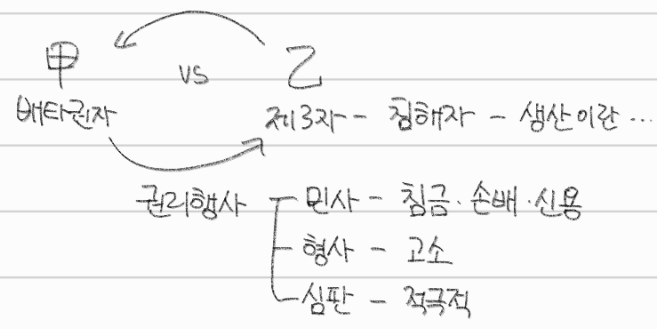 甲 vs 乙
배타권자 제3자 - 침해자 - 생산이란 ...
권리행사 민사 - 침금·손배·신용
형사 - 고소
심판 - 적극적